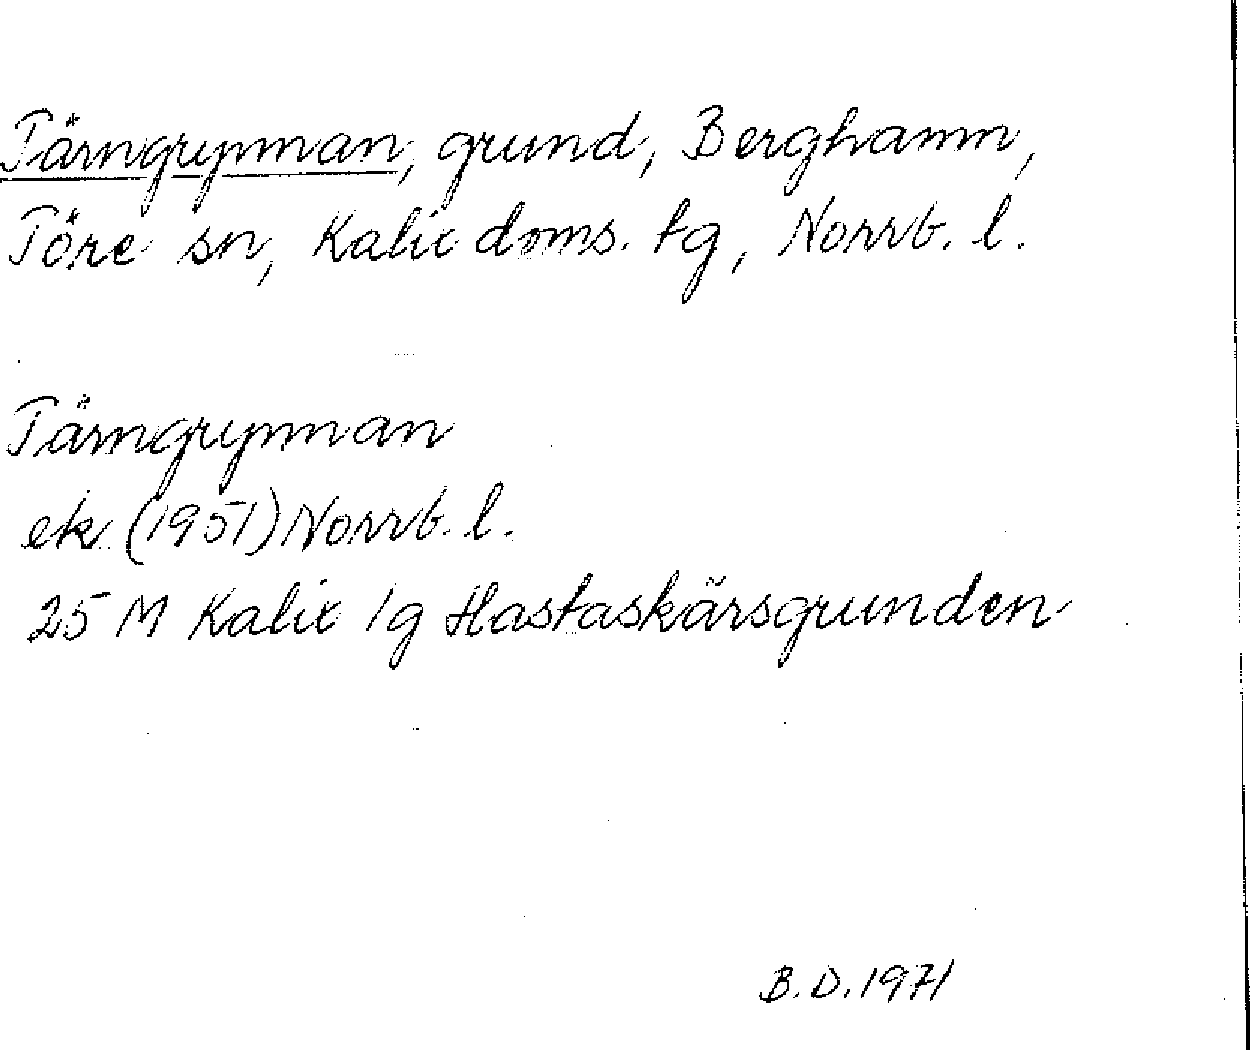 Tärngrynnan, grund, Berghamn,
Töre sn, Kalix doms. tg, Norrb. l.
Tärngrynnan
ek (1951) Norrb. l.
25 M Kalix /g Hastaskärsgrunden
B.D. 1971